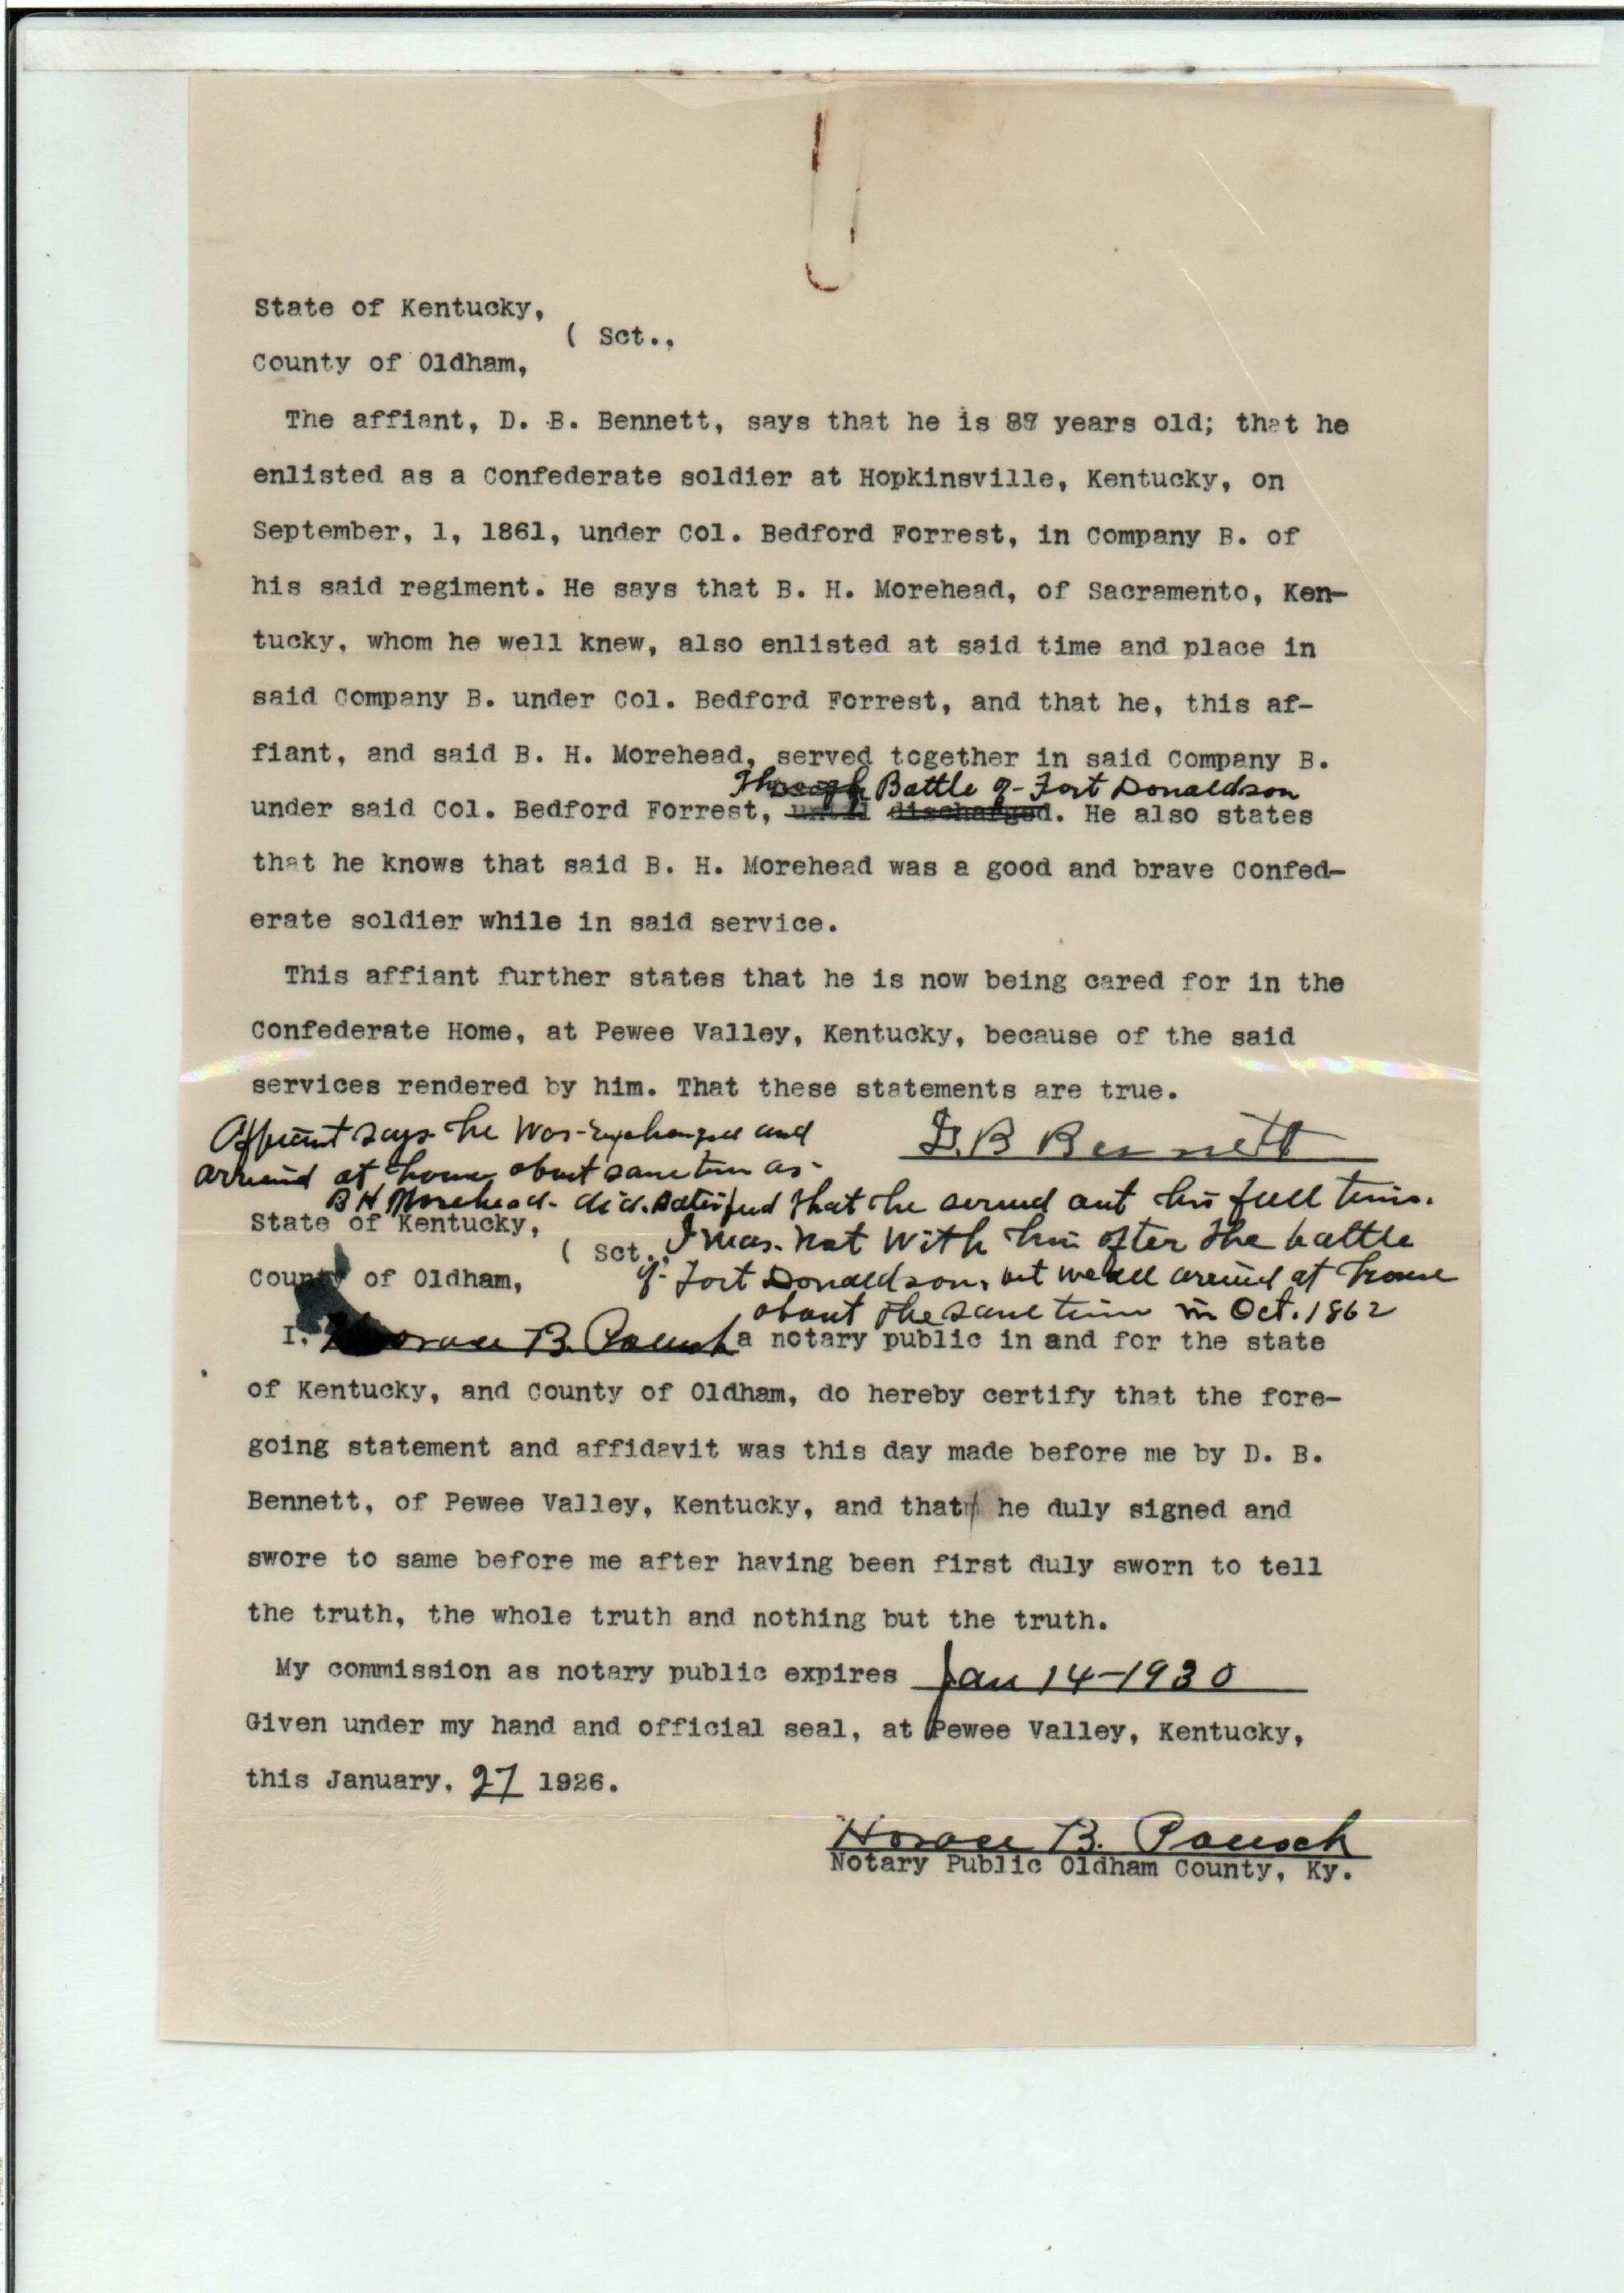 State of Kentucky,
( Sct.,
County of Oldham,
The affiant, D. B. Bennett, says that he is 87 years old; that he
enlisted as a Confederate soldier at Hopkinsville, Kentucky, on
September, 1, 1861, under Col. Bedford Forrest, in Company B. of
his said regiment. He says that B. H. Morehead, of Sacramento, Ken-
tucky, whom he well knew, also enlisted at said time and place in
said Company B. under Col. Bedford Forrest, and that he, this af-
fiant, and said B. H. Morehead, served together in said Company B.
Through Battle of Fort Donaldson
under said Col. Bedford Forrest, until discharged. He also states
that he knows that said B. H. Morehead was a good and brave Confed-
erate soldier while in said service.
This affiant further states that he is now being cared for in the
Confederate Home, at Pewee Valley, Kentucky, because of the said
services rendered by him. That these statements are true.
Affiant says he was exchanged and
D. B Bennett
arrived at home about same time as
B H Morehead did. Satisfied that he served out his full time.
State of Kentucky,
( Sct., I was not with him after the battle
County of Oldham,
of Fort Donaldson, but we all arrived at home
about the same time in Oct. 1862
I, Horace B. a notary public in and for the state
of Kentucky, and County of Oldham, do hereby certify that the fore-
going statement and affidavit was this day made before me by D. B.
Bennett, of Pewee Valley, Kentucky, and that he duly signed and
swore to same before me after having been first duly sworn to tell
the truth, the whole truth and nothing but the truth.
My commission as notary public expires Jan 14-1930
Given under my hand and official seal, at Pewee Valley, Kentucky,
this January, 27 1926.
Horace B.
Notary Public Oldham County, Ky.